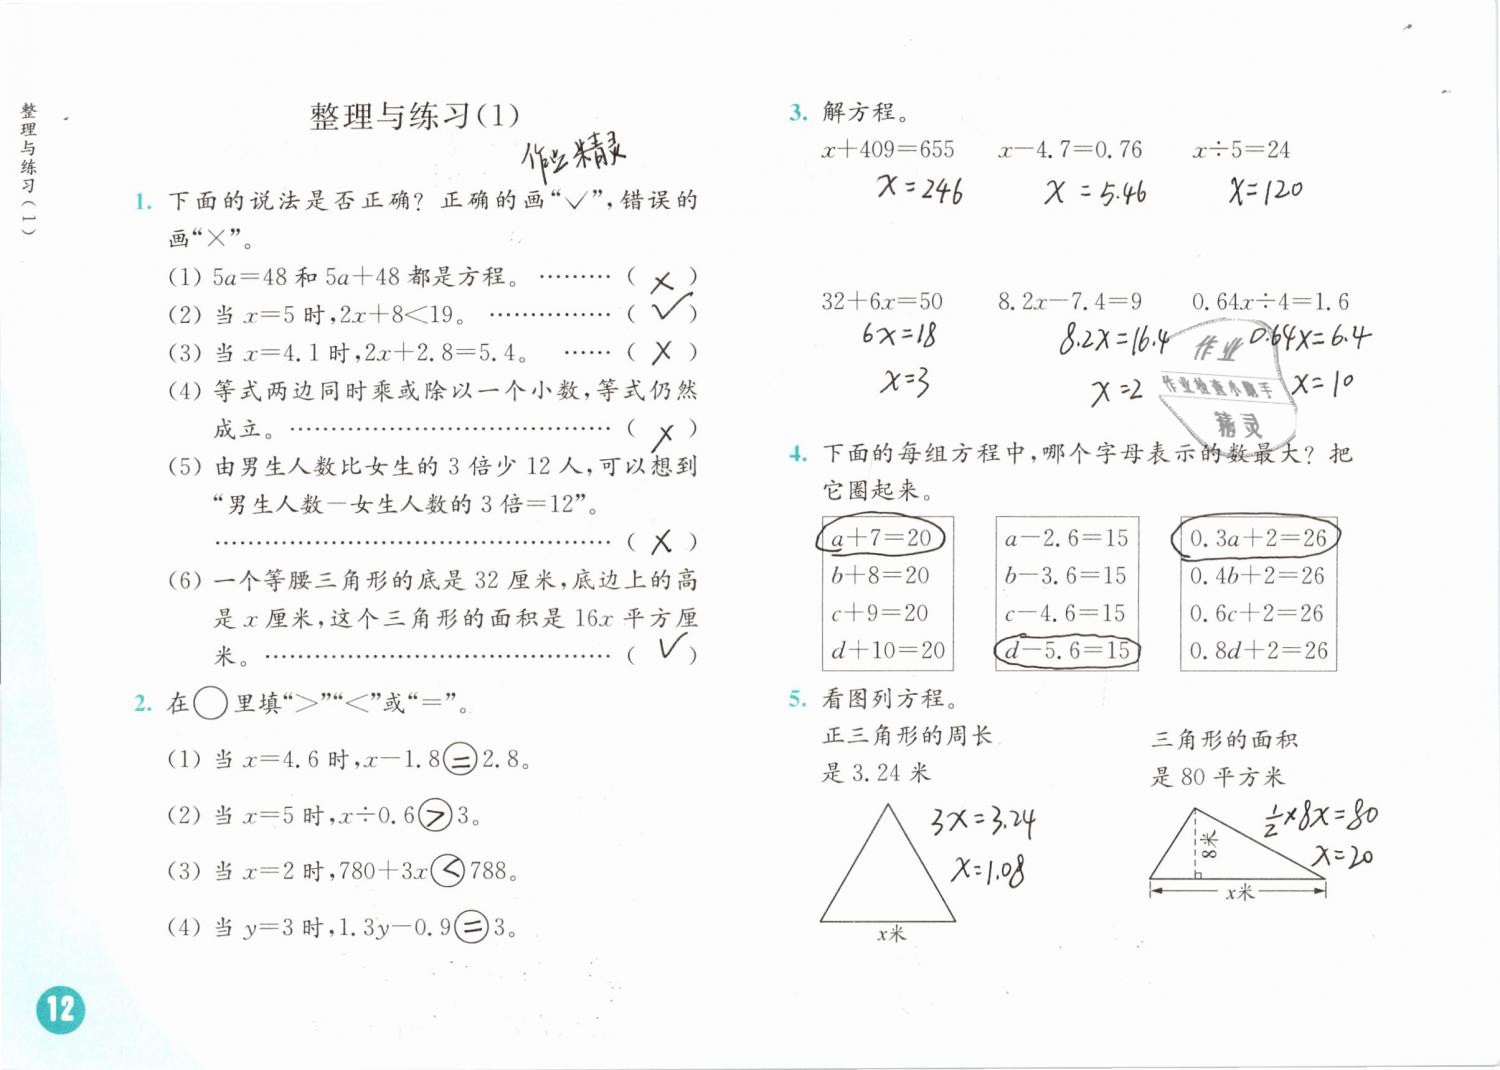 整理与练习(一)
整理与练习(1)
作业精灵
1. 下面的说法是否正确？正确的画“✓”,错误的
画“×”。
(1) 5a=48 和 5a+48 都是方程。 ………( × )
(2) 当 x=5 时,2x+8<19。 ……………( ✓ )
(3) 当 x=4.1 时,2x+2.8=5.4。 ……( × )
(4) 等式两边同时乘或除以一个小数,等式仍然
成立。…………………………………( × )
(5) 由男生人数比女生的 3 倍少 12 人,可以想到
“男生人数－女生人数的 3 倍=12”。
…………………………………………( × )
(6) 一个等腰三角形的底是 32 厘米,底边上的高
是 x 厘米,这个三角形的面积是 16x 平方厘
米。……………………………………( ✓ )
2. 在○里填“>”“<”或“=”。
(1) 当 x=4.6 时,x－1.8=2.8。
(2) 当 x=5 时,x÷0.6>3。
(3) 当 x=2 时,780+3x<788。
(4) 当 y=3 时,1.3y－0.9=3。
12
3. 解方程。
x+409=655 x－4.7=0.76 x÷5=24
x=246 x=5.46 x=120
32+6x=50 8.2x－7.4=9 0.64x÷4=1.6
6x=18 8.2x=16.4 0.64x=6.4
x=3 x=2 x=10
作业
作业检查小助手
精灵
4. 下面的每组方程中,哪个字母表示的数最大？把
它圈起来。
a+7=20 a－2.6=15 0.3a+2=26
b+8=20 b－3.6=15 0.4b+2=26
c+9=20 c－4.6=15 0.6c+2=26
d+10=20 d－5.6=15 0.8d+2=26
5. 看图列方程。
正三角形的周长 三角形的面积
是 3.24 米 是 80 平方米
3x=3.24 ½×8x=80
x=1.08 x=20
8米
x米 x米